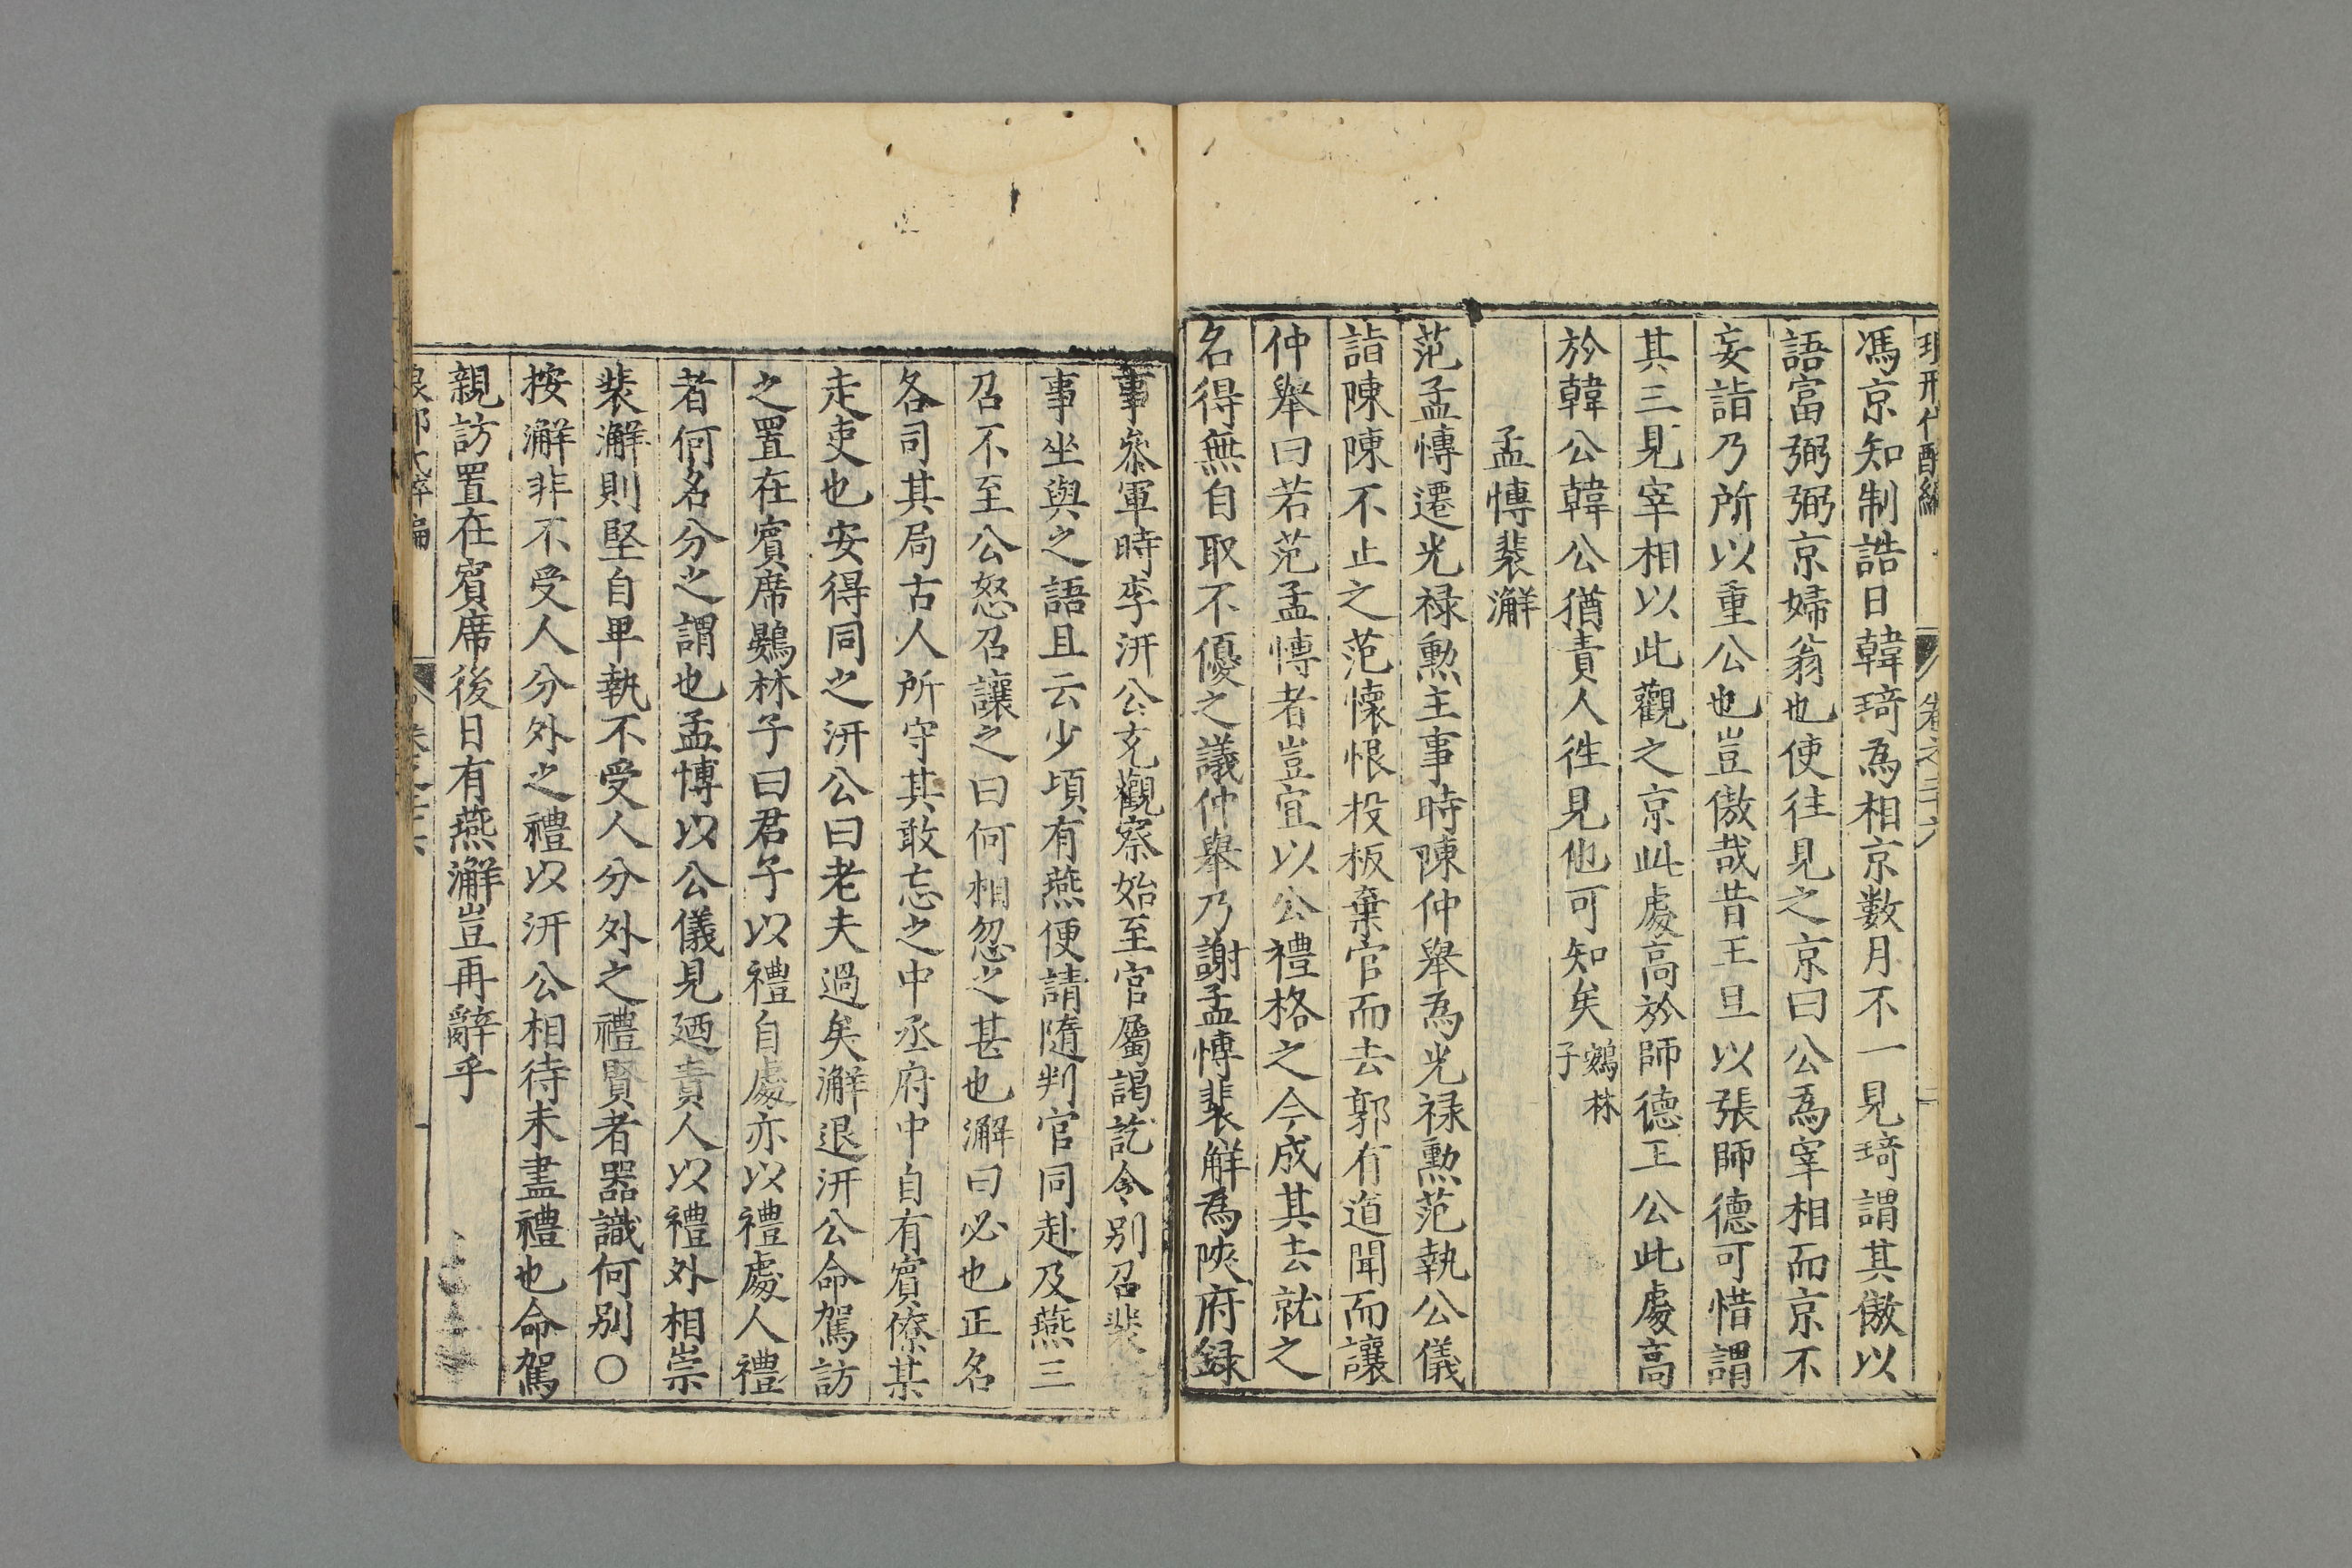 馮京知制誥日韓琦為相京數月不一見琦謂其傲以
語富弼弼京婦翁也使往見之京曰公為宰相而京不
妄詣乃所以重公也豈傲哉昔王旦以張師德可惜謂
其三見宰相以此觀之京此處高於師德王公此處高
於韓公韓公猶責人徃見他可知矣鷄林子
孟慱裴澥
范孟慱遷光禄勲主事時陳仲舉為光禄勲范執公儀
詣陳陳不止之范懐恨投板棄官而去郭有道聞而讓
仲舉曰若范孟慱者豈宜以公禮格之今成其去就之
名得無自取不優之議仲舉乃謝孟慱裴澥為陝府録
事叅軍時李汧公充觀察始至官屬謁訖令别召裴
事坐與之語且云少頃有燕便請隨判官同赴及燕三
召不至公怒召讓之曰何相忽之甚也澥曰必也正名
各司其局古人所守其敢忘之中丞府中自有賓僚某
走吏也安得同之汧公曰老夫過矣澥退汧公命駕訪
之置在賓席鷄林子曰君子以禮自處亦以禮處人禮
者何名分之謂也孟愽以公儀見廼責人以禮外相崇
裴澥則堅自卑執不受人分外之禮賢者器識何别〇
按澥非不受人分外之禮以汧公相待未盡禮也命駕
親訪置在賓席後日有燕澥豈再辭乎